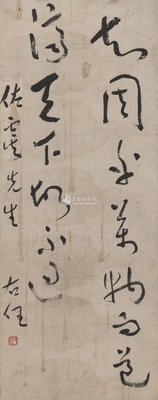 知周乎萬物而道
濟天下故不過
佐先生
右任